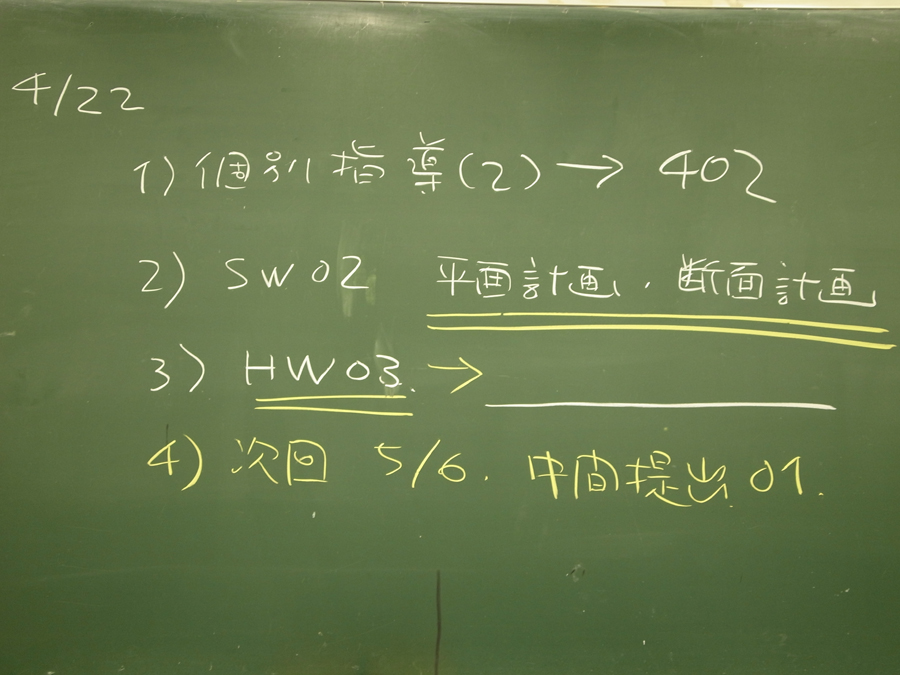 4/22
1) 個別指導(2) → 402
2) SW02 平画計画、断面計画
3) HW03. →
4) 次回 5/6. 中間提出01.